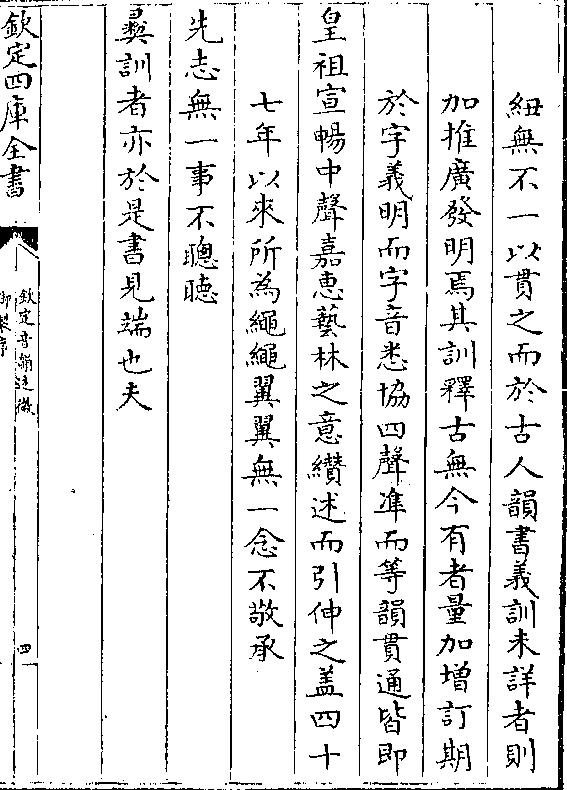 紐無不一以貫之而於古人韻書義訓未詳者則
加推廣發明焉其訓釋古無今有者量加增訂期
於字義明而字音悉協四聲準而等韻貫通皆即
皇祖宣暢中聲嘉惠藝林之意纘述而引伸之盖四十
七年以來所為繩繩翼翼無一念不敬承
先志無一事不聰聽
彛訓者亦於是書見端也夫
欽定四庫全書
欽定音韻述微
御製序
四